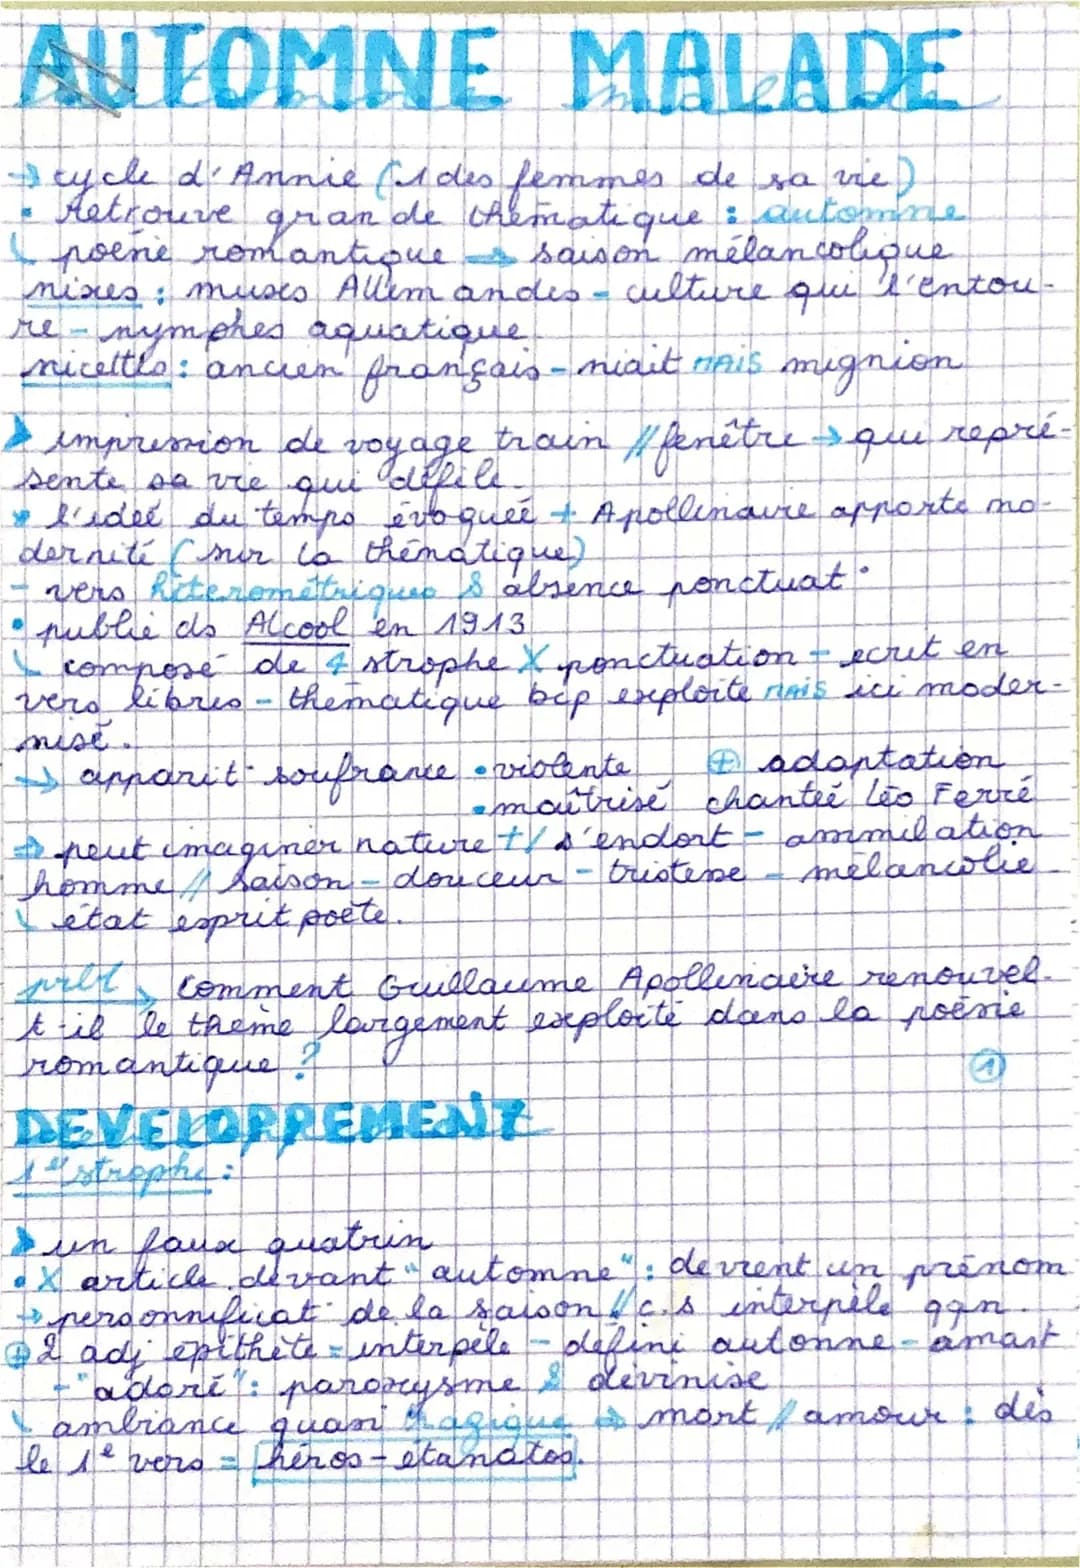 AUTOMNE MALADE
→ cycle d'Annie (1 des femmes de sa vie)
• Retrouve grande thématique : automne
↳ poésie romantique → saison mélancolique
nixes : muses Allemandes - culture qui l'entou-
re - nymphes aquatique
nicettes : ancien français - niait MAIS mignion
➤ impression de voyage train // fenêtre → qui repré-
sente sa vie qui défile.
• l'idéé du temps évoquéé + Apollinaire apporte mo-
dernité (sur la thématique)
- vers héterométriques & absence ponctuat°
• publié ds Alcool en 1913
↳ composé de 4 strophe X ponctuation - ecrit en
vers libres - thématique bcp exploité MAIS ici moder-
nisé.
→ apparit° soufrance • violente ⊕ adaptation
• maîtrisé chantéé Léo Ferré
⇒ peut imaginer nature +/ s'endort - ammilation
homme // saison - douceur - tristesse - mélancolie
↳ état esprit poète.
prblt ↘ Comment Guillaume Apollinaire renouvel-
t-il le thème largement exploité dans la poésie
romantique ?
①
DEVELOPPEMENT
1e strophe :
➤ un faux quatrin
• X article devant "automne" : devient un prénom
→ personnificat° de la saison // c.s interpèle qqn.
⊕ 2 adj épithète = interpèle - défini automne - amant
- "adoré" : paroxysme & divinise
↳ ambiance quasi tragique → mort // amour : dès
le 1e vers = héros - étanatos.